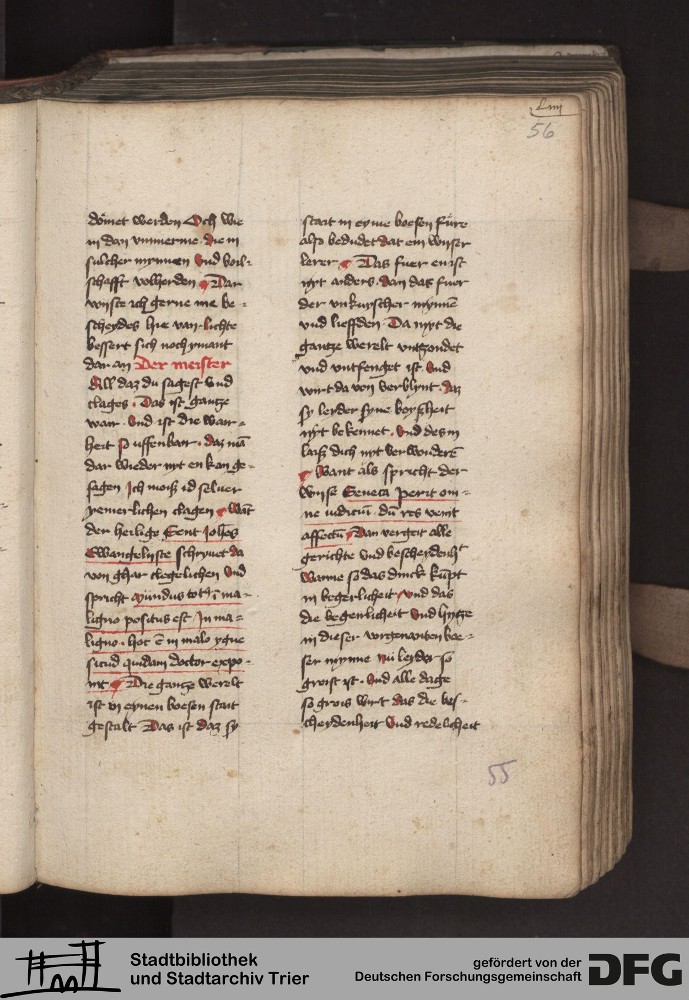 Liiij
56
domet werden Och wie
in dan vmmerme die in
sulcher mynnen Vnd boil-
schafft volherden Dar
wuste ich gerne me be-
scheydes hie van lichte
bessert sich noch ymant
dar an Der meister
All daz du sagest Vnd
clages Das ist gantze
wair Vnd ist die wair-
heit so uffenbair daz mā
dar wieder nit en kan ge-
sagen Ich moiß id seluer
yemerlichen clagen Wāt
der heilige Sent Johēs
Ewangeliste schryuet da
von ghar clegelichen Vnd
spricht Mundus totꝰ ī ma-
ligno positus est In ma-
ligno hoc ē in malo ygne
sicud quidam doctor expo-
nit Die gantze werelt
ist in eynen boesen stait
gestalt Das ist daz sy
stait in eyme boesen füre
also bedudet dat ein wyser
lerer Das fuer en ist
nyt anders dan das fuer
der vnkuyscher mynnē
vnd lieffden Da myt die
gantze werelt vntzondet
vnd vntfenget ist Vnd
wirt da von verblynt daz
sy leyder syne boyßheit
nyt bekennet Vnd des in
laiß dich nit verwonderē
Want als spricht der
wyse Seneca Perit om-
ne iudiciū dū res venit
affectū Dan vergeit alle
gerichte Vnd bescheydenht
Wanne so das dinck kūpt
in begerlicheit Vnd das
die begerlicheit Vnd hytze
in dieser boe-
ser mynne Nū leyder so
groist ist Vnd alle dage
so grois wirt das die bes-
cheydenheit Vnd redelicheit
55
Stadtbibliothek
und Stadtarchiv Trier
gefördert von der
Deutschen Forschungsgemeinschaft
DFG